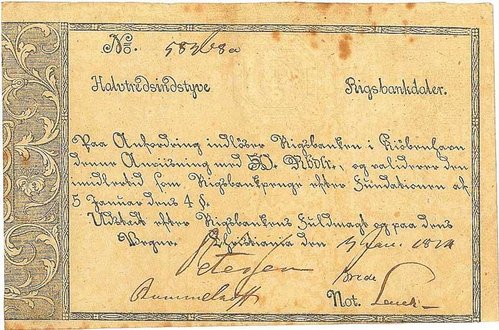 No. 58308a
Halvtredsindstyve Rigsbankdaler.
Paa Anfordring indløser Rigsbanken i Kiöbenhavn
denne Anviisning med 50. Rbdlr., og validerer den
imidlertid som Rigsbankpenge efter Fundationen af
5 Januar dens 4 §.
Udstædt efter Rigsbankens Fuldmagt og paa dens
Vegne. Christiania den Jan. 1814
Petersen
Rummelhoff Not.